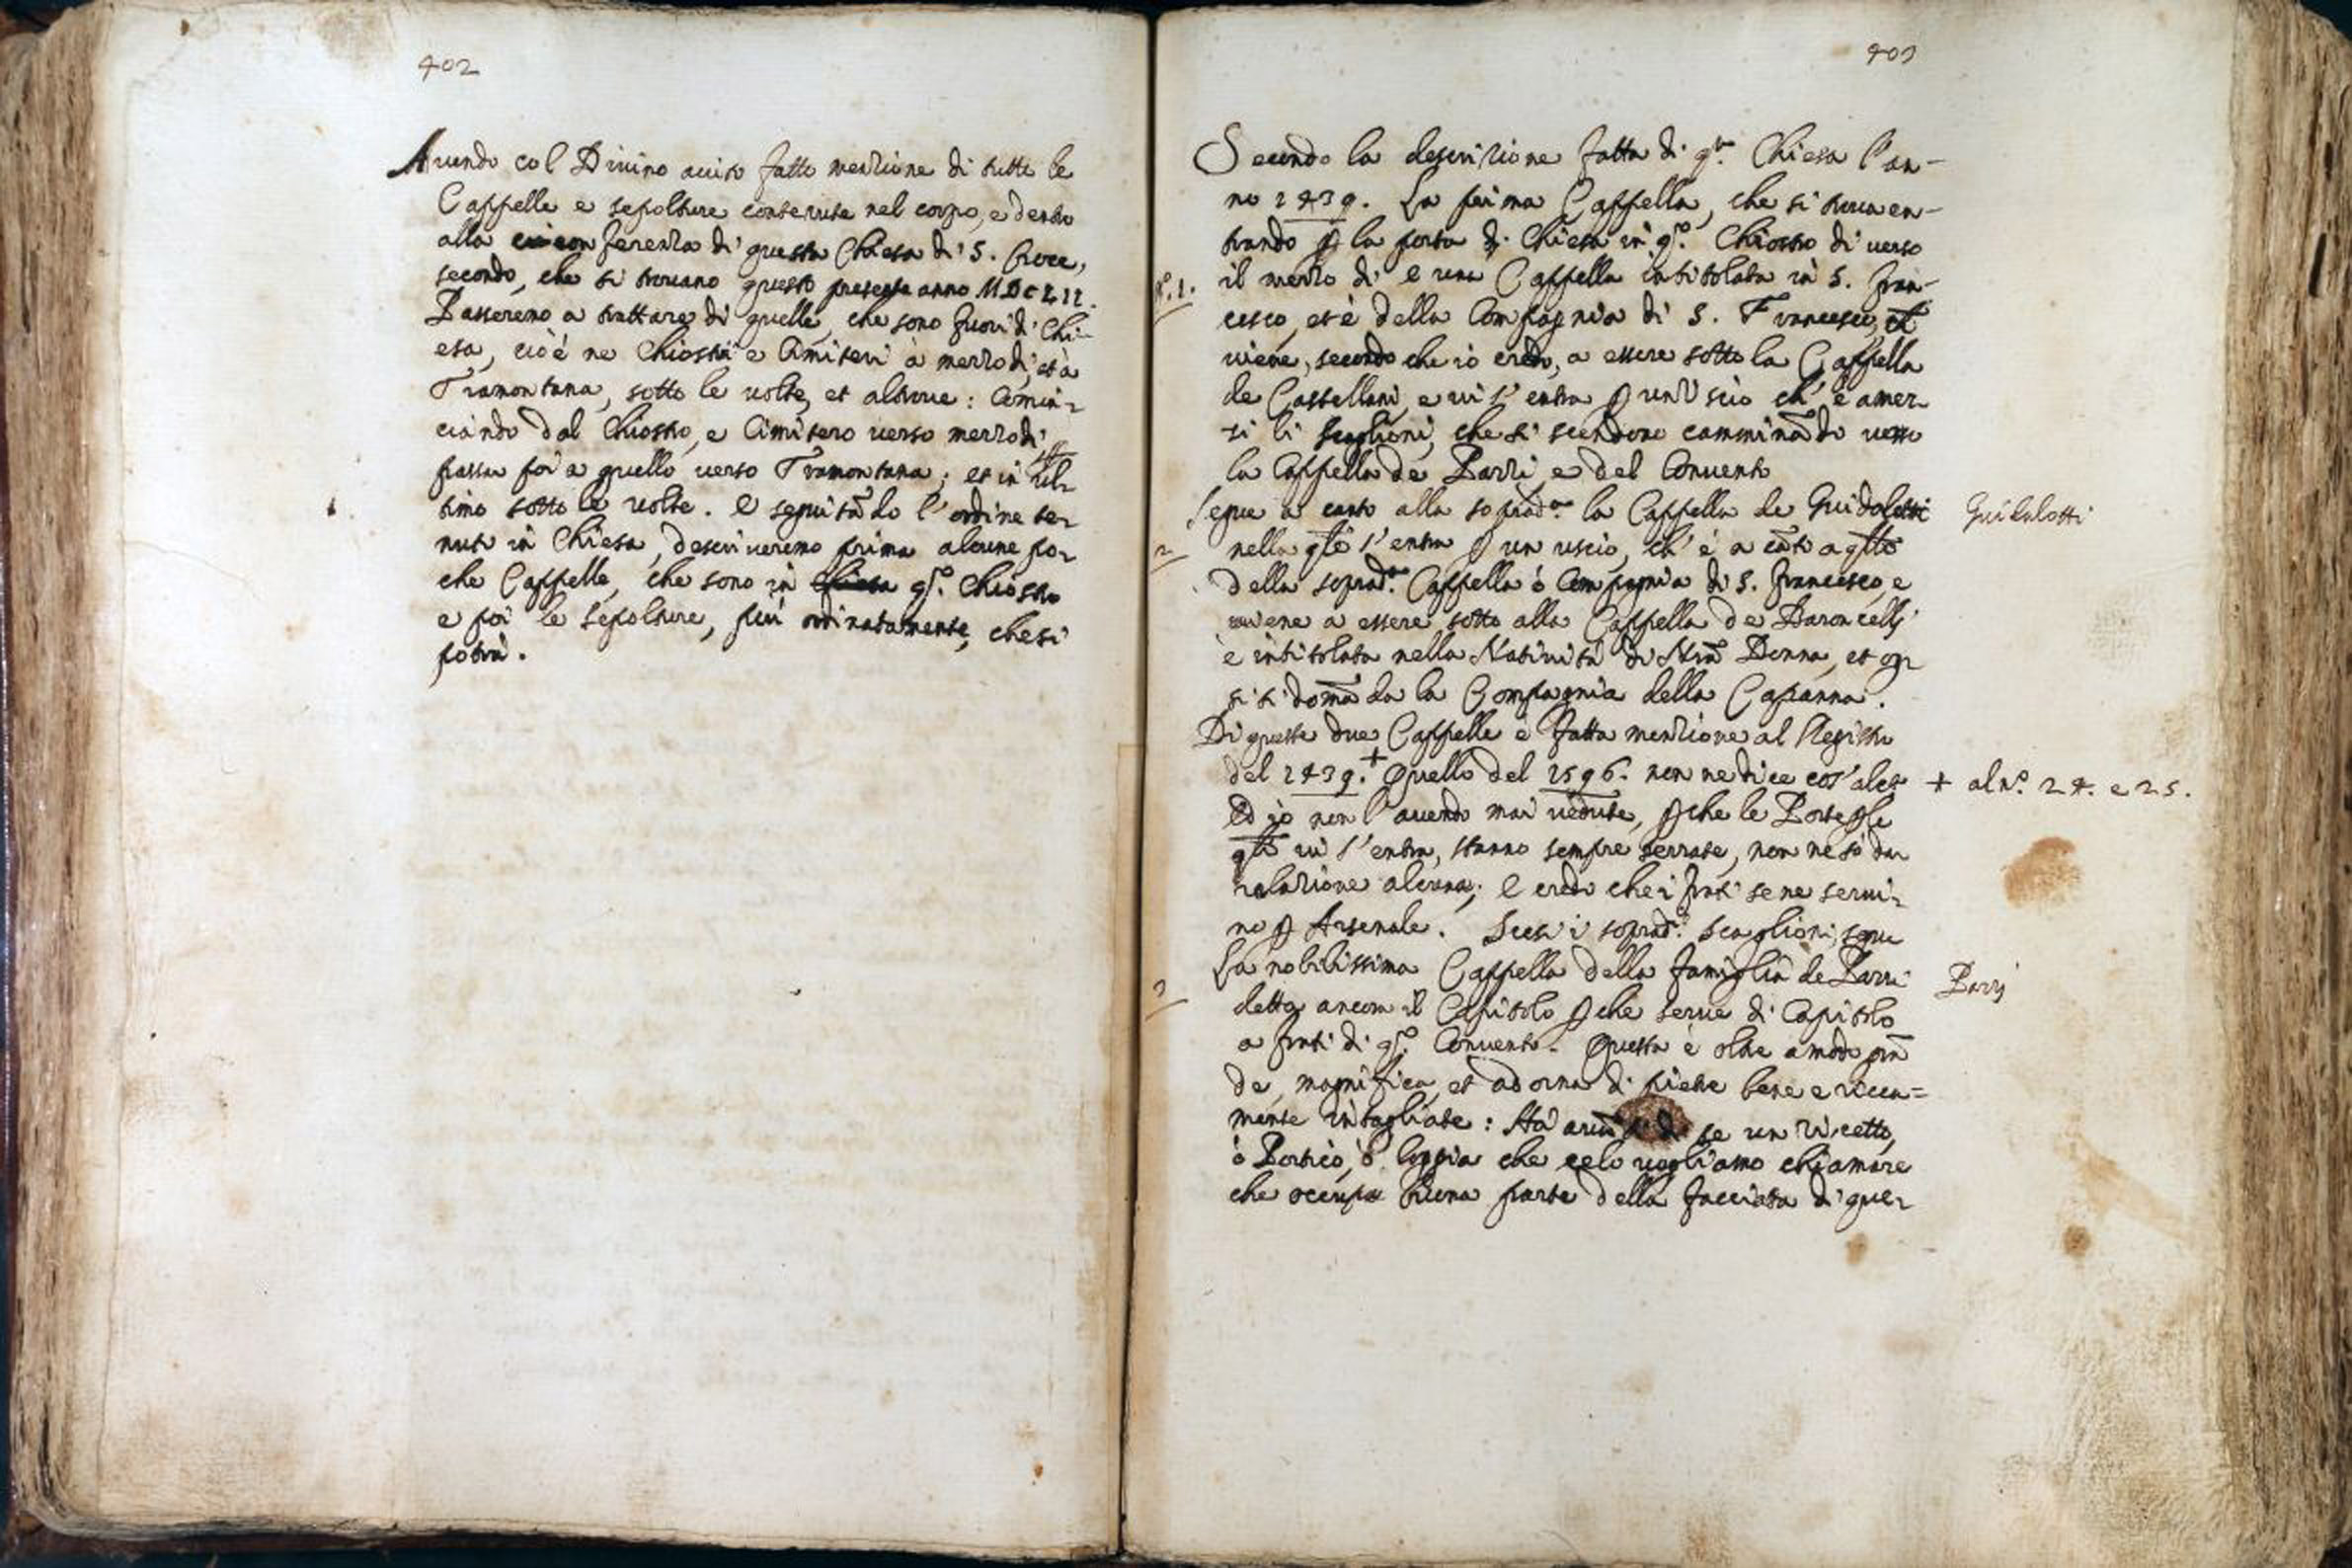 402
Auendo col Diuino aiuto fatto menzione di tutte le
Cappelle e sepolture contenute nel corpo, e dentro
alla circonferenza di questa Chiesa di S. Croce,
secondo, che si trouano questo presente anno MDCLII.
Passeremo a trattare di quelle, che sono fuori di Chi-
esa, cioè ne Chiostri e Cimiteri à mezzodì, et à
Tramontana, sotto le uolte, et altroue: Comin-
ciando dal Chiostro, e Cimitero uerso mezzodì
passa poi a quello uerso Tramontana; et in ul-
timo sotto le uolte. E seguitādo l'ordine te-
nuto in Chiesa, descriueremo prima alcune po-
che Cappelle, che sono in Chiesa qs.º Chiostro
e poi le sepolture, più ordinatamente, che si
potrà.
403
Secondo la descrizione fatta di qᵗᵃ. Chiesa l'an-
no 1439. La prima Cappella, che si troua en-
trando ꝑ la porta di Chiesa in qº. Chiostro di uerso
nº. 1. il mezzo dì è una Cappella intitolata in S. Fran-
cesco, et è della Compagnia di S. Francesco, et
uiene, secondo che io credo, a essere sotto la Cappella
de Castellani, e ui s'entra ꝑ un Uscio ch' è amez-
zi li scaglioni, che si scendono camminādo uerso
la Cappella de Pazzi, e del Conuento
Segue a canto alla soprad.ª la Cappella de Guidalotti Guidalotti
2 nella qle s'entra ꝑ un uscio, ch' è a cāto a qllo
della soprad.ª Cappella ò Compagnia di S. Francesco, e
uiene a essere sotto alla Cappella de Baroncelli
è intitolata nella Natiuità di Nrā Donna, et og-
si si domāda la Compagnia della Capanna.
Di queste due Cappelle è fatta menzione al Registro
del 1439.+ Quello del 1596. non ne dice cos' alcª + al nº. 24. e 25.
Ed io non l'auendo mai uedute, ꝑche le Porte ꝑ le
qli ui s'entra, stanno sempre serrate, non ne sò dar
relazione alcuna; E credo che i frati se ne serui-
no ꝑ Arsenale. Scesi i soprad.ⁱ scaglioni, segue
La nobilissima Cappella della famiglia de Pazzi Pazzi
3 detta ancora il Capitolo ꝑche serue di Capitolo
a frati di qsº. Conuento. Questa è oltre a modo grā
de, magnifica, et adorna di pietre bene e ricca=
mente intagliate: Hà auāti di se un Ricetto,
ò Portico, ò loggia che celo uogliamo chiamare
che occupa buona parte della facciata di que-